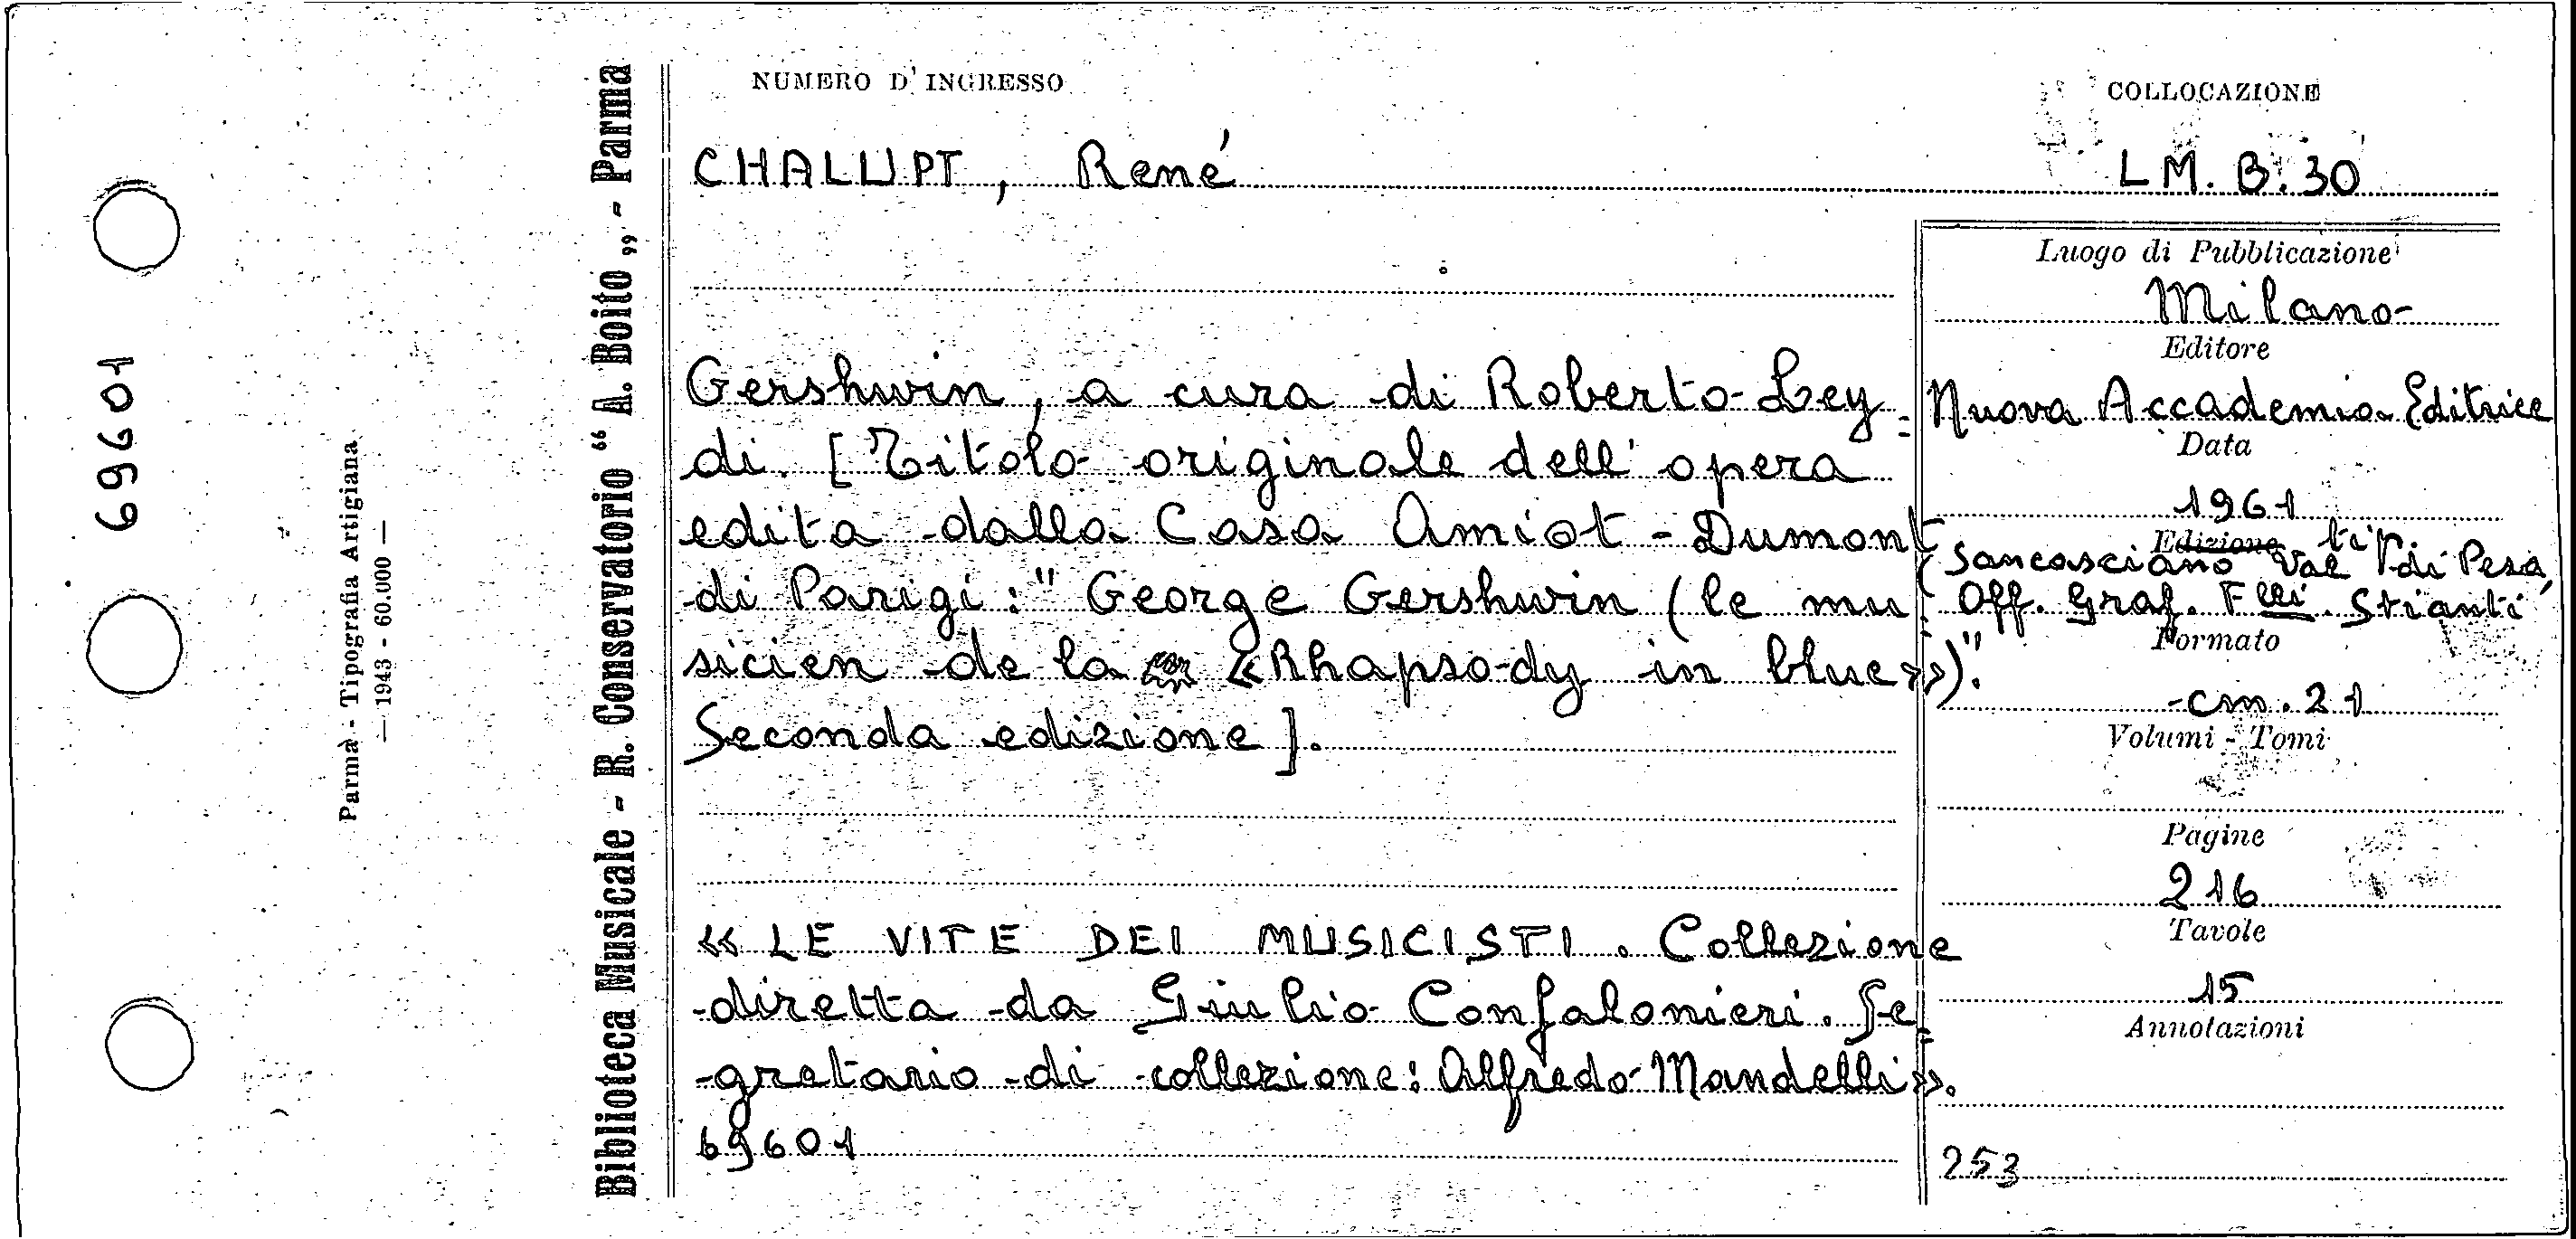 69601
Parma - Tipografia Artigiana
— 1943 - 60.000 —
Biblioteca Musicale - R. Conservatorio “ A. Boito „ - Parma
NUMERO D'INGRESSO
COLLOCAZIONE
CHALUPT, René
LM. B. 30
Gershwin, a cura di Roberto Ley-
di. [Titolo originale dell'opera
edita dalla Casa Amiot-Dumont
di Parigi: "George Gershwin (le mu-
sicien de la «Rhapsody in blue»)".
Seconda edizione].
«LE VITE DEI MUSICISTI. Collezione
diretta da Giulio Confalonieri. Se-
gretario di collezione: Alfredo Mandelli».
69601
Luogo di Pubblicazione
Milano
Editore
Nuova Accademia Editrice
Data
1961
Edizione
tip.
(Sancasciano Val di Pesa,
Off. Graf. F.lli Stianti
Formato
cm. 21
Volumi - Tomi
Pagine
216
Tavole
15
Annotazioni
253